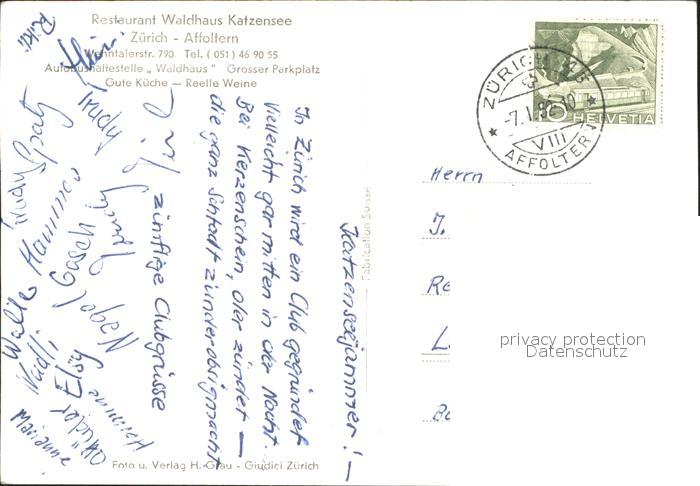 Restaurant Waldhaus Katzensee
Zürich - Affoltern
Wehntalerstr. 790 Tel. (051) 46 90 55
Autobushaltestelle „Waldhaus" Grosser Parkplatz
Gute Küche — Reelle Weine
Katzenseejammer! —
In Zürich wird ein Club gegründet
Vielleicht gar mitten in der Nacht.
Bei Kerzenschein, der zündet —
die ganz Schtadt zünderobsigmacht
zünftige Clubgrüsse
Trudy
Nägel
Gosch
Hammer
Walle
Trudy
Ruedi
Marianne
Hermine
Foto u. Verlag H. Grau - Giudici Zürich
Fabrication Suisse
ZÜRICH
-7.1.52-10
VIII
AFFOLTERN
HELVETIA
Herrn
J.
Re
L.
Ba
privacy protection
Datenschutz